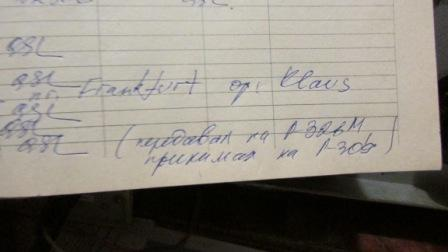 QSL
QSL
QSL
nr. Frankfurt op. Klaus
QSL
QSL
QSL (передавал на Р-326М
принимал на Р-309)